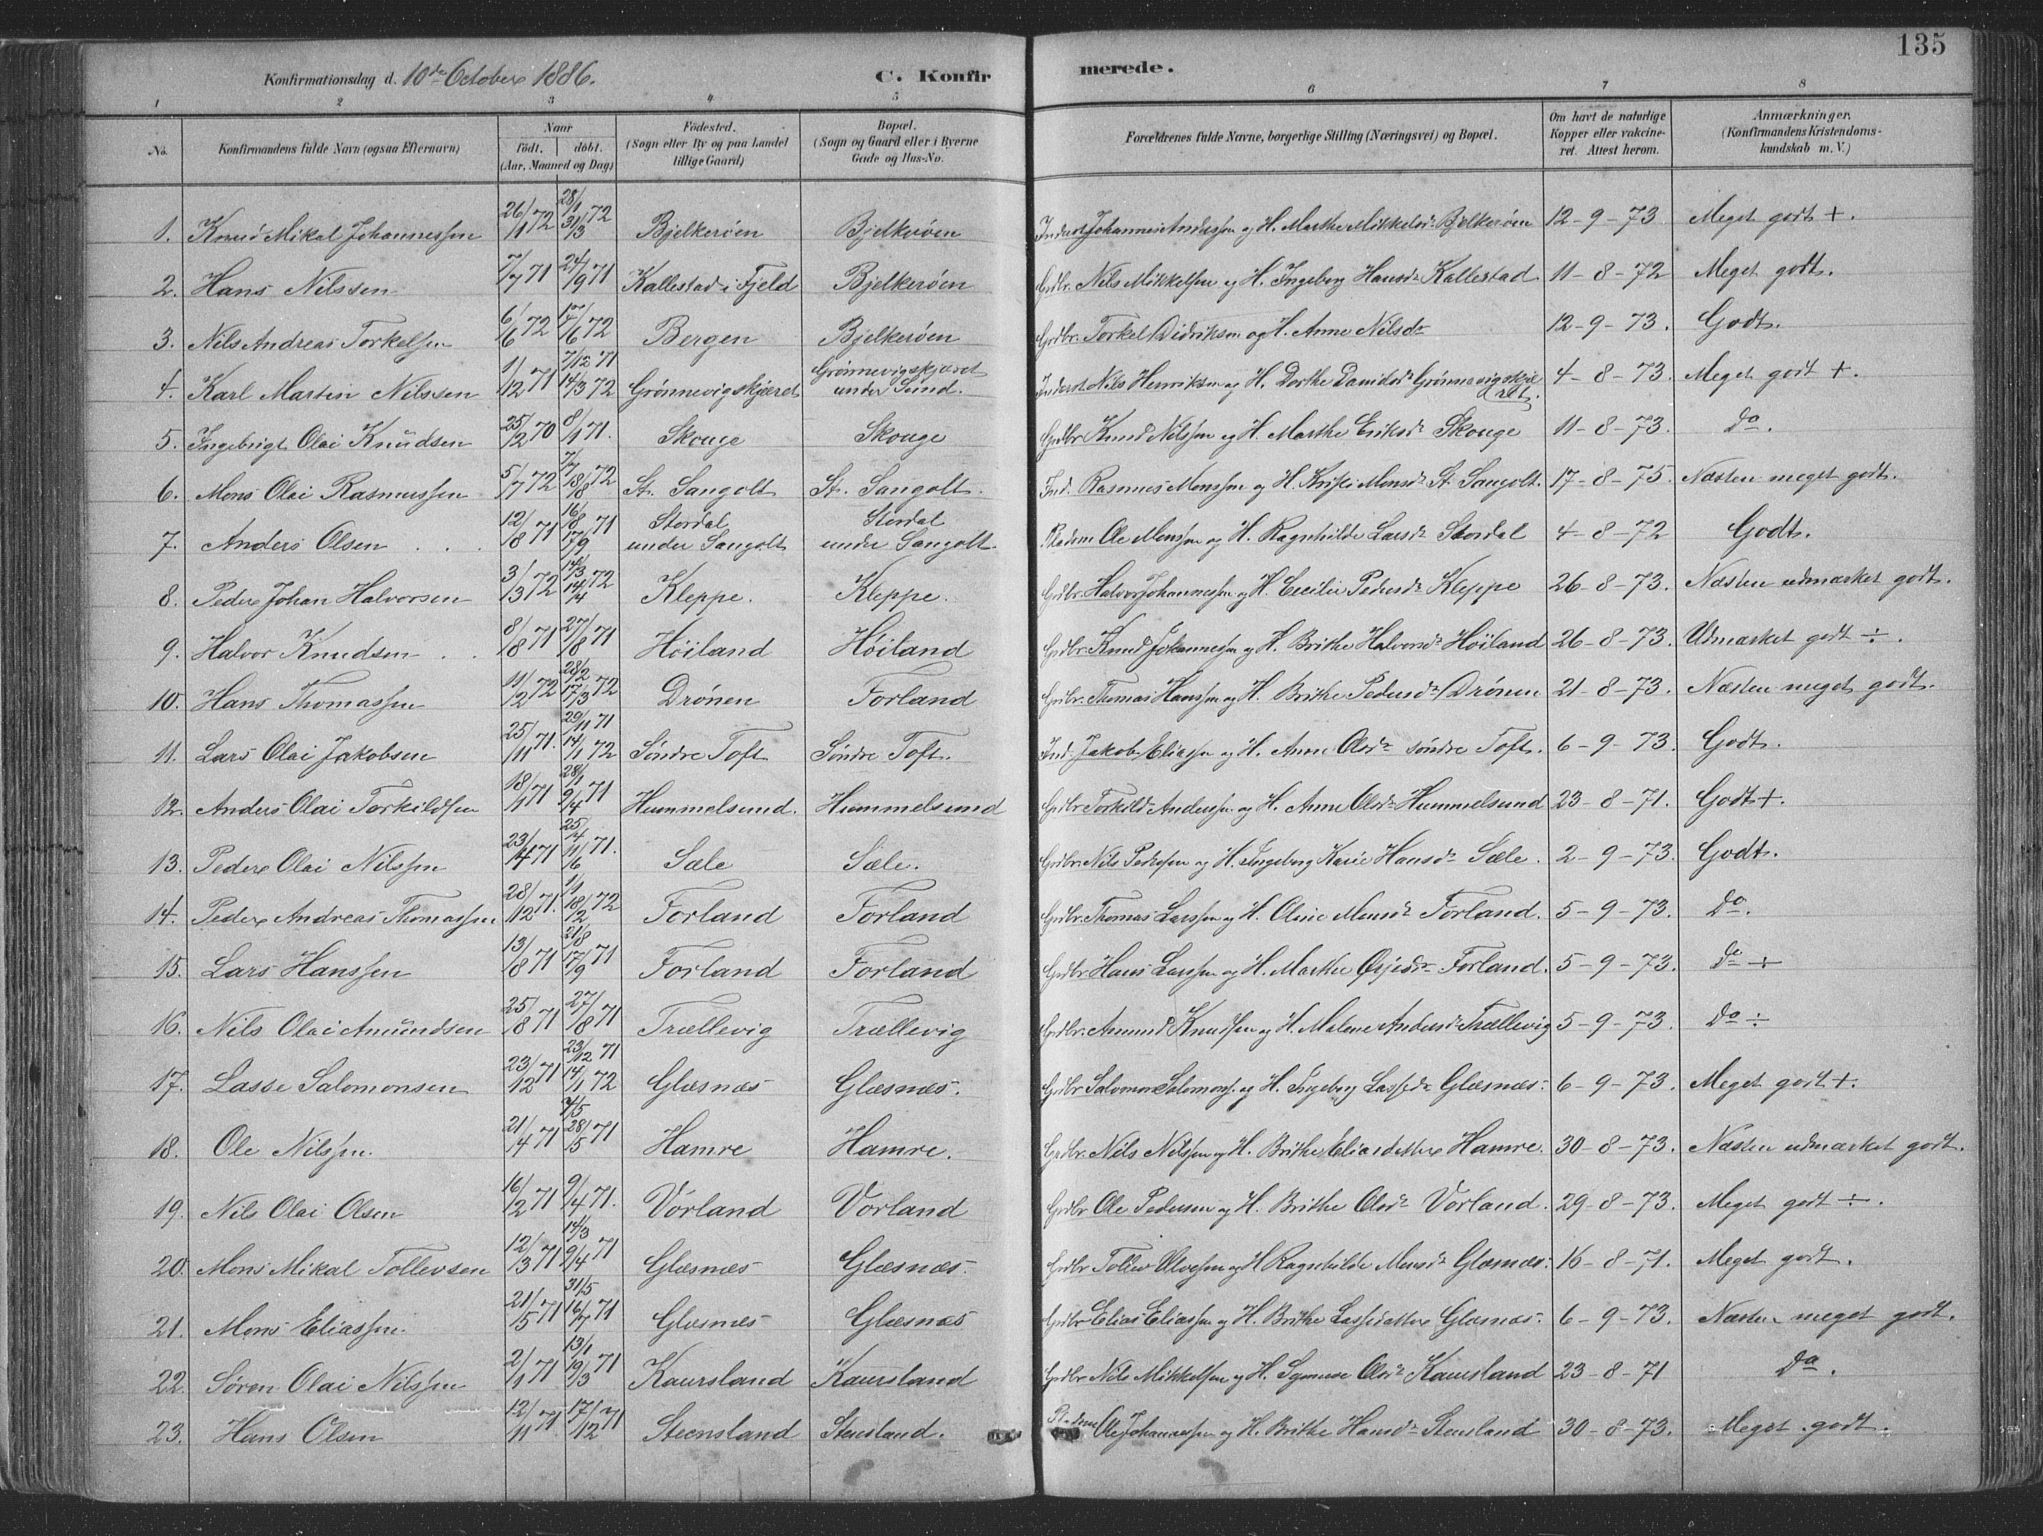 135
Konfirmationsdag d. 10de October 1886. C. Konfirmerede.
1 2 3 4 5 6 7 8
No. Konfirmandens fulde Navn (ogsaa Efternavn) Naar født. døbt. (Aar, Maaned og Dag) Fødested. (Sogn eller By og paa Landet tillige Gaard) Bopæl. (Sogn og Gaard eller i Byerne Gade og Hus-No. Forældrenes fulde Navne, borgerlige Stilling (Næringsvei) og Bopæl. Om havt de naturlige Kopper eller vakcineret. Attest herom. Anmærkninger. (Konfirmandens Kristendomskundskab m. V.)
1. Knud Mikal Johannessen 26/1 72 28/1 31/3 72 Bjelkerøen Bjelkerøen Inderst Johannes Andersen og H. Marthe Mikkelsdr Bjelkerøen 12-9-73 Meget godt +.
2. Hans Nilssen 7/7 71 24/9 71 Kallestad i Fjeld Bjelkerøen Grdbr. Nils Mikkelsen og H. Ingeborg Hansdr Kallestad. 11-8-72 Meget godt.
3. Nils Andreas Torkelsen 6/6 72 17/6 72 Bergen Bjelkerøen Grdbr. Torkel Didriksen og H. Anne Nilsdr 12-9-73. Godt.
4. Karl Martin Nilssen 1/12 71 7/12 71 14/3 72 Grønnevigskjæret Grønnevigskjæret under Sund. Inderst Nils Henriksen og H. Dorthe Danielsdr Grønnevigskjæret. 4-8-73. Meget godt +.
5. Ingebrigt Olai Knudsen 25/12 70 8/1 71. Skouge Skouge Grdbr. Knud Nilssen og H. Marthe Eriksdr Skouge 11-8-73. Do.
6. Mons Olai Rasmussen 5/7 72 7/7 18/8 72 St. Sangolt St. Sangolt. Ind. Rasmus Monssen og H. Kristi Monsdr St. Sangolt. 17-8-75. Næsten meget godt.
7. Anders Olsen 12/8 71 16/8 17/9 71 Stordal under Sangolt Stordal under Sangolt. Pladsm Ole Monssen og H. Ragnhilde Larsdr Stordal 4-8-72 Godt.
8. Peder Johan Halvorsen 3/3 72 14/3 14/4 72 Kleppe. Kleppe. Grdbr. Halvor Johannessen og H. Cecilie Pedersdr Kleppe 26-8-73. Næsten udmærket godt.
9. Halvor Knudsen 8/8 71 27/8 71 Høiland Høiland Grdbr. Knud Johannessen og H. Brithe Halvorsdr Høiland 26-8-73. Udmærket godt ÷.
10. Hans Thomassen 11/2 72 28/2 17/3 72 Drønen Forland Grdbr. Thomas Hanssen og H. Brithe Pedersdr Drønen 21-8-73. Næsten meget godt.
11. Lars Olai Jakobsen 25/11 71. 29/11 71 14/1 72 Søndre Toft Søndre Toft. Ind. Jakob Eliassen og H. Anne Olsdr søndre Toft. 6-9-73. Godt.
12. Anders Olai Torkildsen 18/1 71 28/1 9/4 71 Hummelsund. Hummelsund Grdbr. Torkild Anderssen og H. Anne Olsdr Hummelsund 23-8-71. Godt +.
13. Peder Olai Nilssen 23/4 71 25/4 11/6 71. Sæle Sæle. Grdbr. Nils Pedersen og H. Ingeborg Karie Hansdr Sæle. 2-9-73. Godt.
14. Peder Andreas Thomassen 28/12 71. 1/1 18/2 72 Forland Forland Grdbr. Thomas Larssen og H. Oline Monsdr Forland. 5-9-73. Do.
15. Lars Hanssen 13/8 71 21/8 17/9 71 Forland Forland Grdbr. Hans Larssen og H. Marthe Forland. 5-9-73. Do +
16. Nils Olai Amundsen 25/8 71 27/8 71 Trællevig Trællevig Grdbr. Amund Knudsen og H. Malene Andersdr Trællevig 5-9-73. Do ÷
17. Lasse Salomonsen 23/12 71 23/12 71 14/1 72 Glæsnæs Glæsnæs. Grdbr. Salomon Salomons. og H. Ingeborg Lassedr Glæsnæs. 6-9-73. Meget godt +.
18. Ole Nilssen. 21/4 71 7/5 28/5 71 Hamre Hamre. Grdbr. Nils Nilssen og H. Brithe Eliasdatter Hamre. 30-8-73. Næsten udmærket godt.
19. Nils Olai Olsen 16/2 71 9/4 71. Vorland Vorland Grdbr Ole Pedersen og H. Brithe Olsdr Vorland. 29-8-73. Meget godt ÷.
20. Mons Mikal Tollevsen 12/3 71 14/3 9/4 71 Glæsnæs Glæsnæs. Grdbr Tollev Olvesen og H. Ragnhilde Monsdr Glæsnæs. 16-8-71. Meget godt.
21. Mons Eliassen. 21/5 71 31/5 16/7 71 Glæsnæs Glæsnæs Grdbr Elias Eliassen og H. Brithe Lassedatter Glæsnæs. 6-9-73. Næsten meget godt.
22. Søren Olai Nilssen 2/1 71 13/1 19/3 71 Kaursland Kaursland Grdbr Nils Mikkelsen og H. Olsdr Kaursland 23-8-71 Do.
23. Hans Olsen 12/11 71. 17/12 71 Steensland Stensland. Ole Johannessen og H. Brithe Hansdr Stensland 30-8-73. Meget godt.